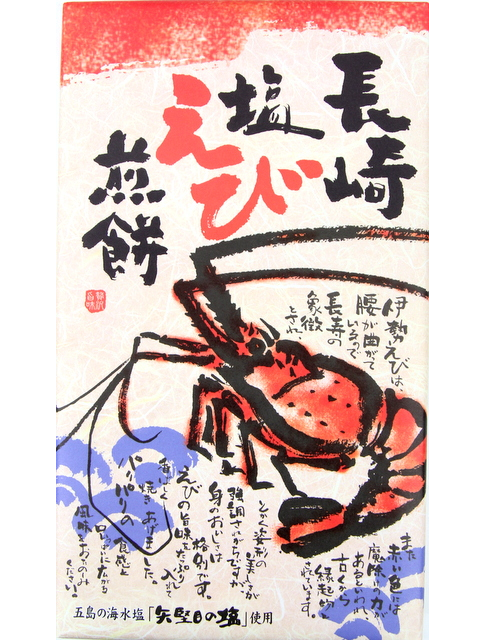 長崎
塩
えび
煎餅
伊勢えびは、
腰が曲がて
いるので
長寿の
象徴
とされ
また
赤い色には
魔除けの力が
あるといわれ、
古くから
縁起物と
されています。
とかく姿形の
美しさが
強調されがちですが、
身のおいしさは
格別です。
えびの旨味をたっぷり
入れて
香ばしく
焼きあげました。
パリパリの食感と
お口いっぱいに広がる
風味をおたのしみ
ください。
五島の海水塩「矢堅目の塩」使用